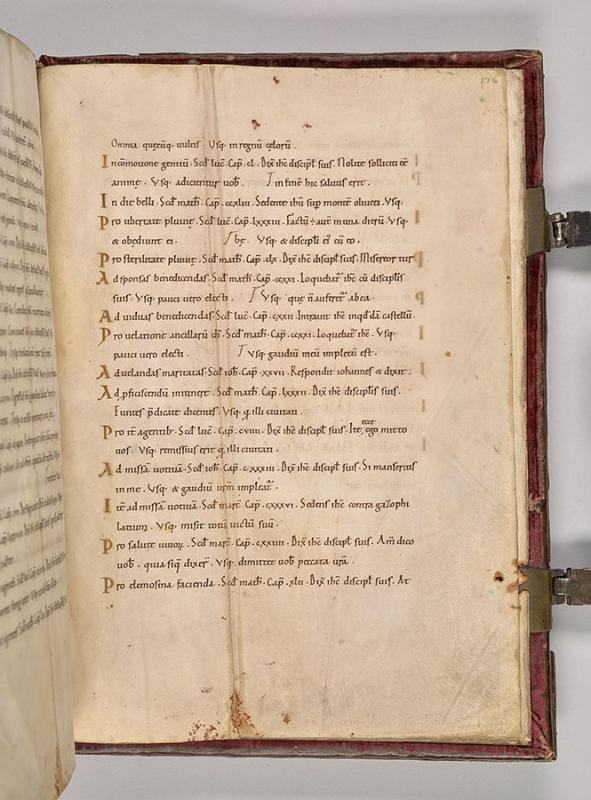 176
Omnia quęcūq; vultis . Vsq; in regnū cęlorū .
In cōmotione gentiū . Scd̄ luc̄ . Cap̄ . cl . Dix̄ ih̄c discipl̄ suis . Nolite solliciti ēē
animę . Vsq; adicientur uob̄ . in fine hic saluus erit .
In die belli . Scd̄ math̄ . Cap̄ . ccxliii . Sedente ih̄u sup montē oliueti . Vsq;
Pro ubertate pluuię . Scd̄ luc̄ . Cap̄ . lxxxiii . Factū ÷ aut̄ in una dierū . Vsq;
& obędiunt ei . Vsq; & discipl̄i ei' cū eo .
Pro sterilitate pluuię . Scd̄ math̄ . Cap̄ . clx . Dix̄ ih̄c discipl̄ suis . Misereor tur
Ad sponsas benedicendas . Scd̄ math̄ . Cap̄ . ccxxi . Loquebat̄ ih̄c cū discipl̄is
suis . Vsq; pauci uero electi . Vsq; quę n̄ auferet̄ ab ea .
Ad uiduas benedicendas . Scd̄ luc̄ . Cap̄ . cxxii . Intrauit ih̄c in qd̄dā castellū .
Pro uelatione ancillarū dī . Scd̄ math̄ . Cap̄ . ccxxi . Loquebat̄ ih̄c . Vsq;
pauci uero electi . Vsq; gaudiū meū impletū est .
Ad uelandas maritatas . Scd̄ ioh̄ . Cap̄ . xxvii . Respondit iohannes & dixit .
Ad p̄ficiscendū in itinere . Scd̄ math̄ . Cap̄ . lxxxii . Dix̄ ih̄c discipl̄is suis .
Euntes p̄dicate dicentes . Vsq; q̄ illi ciuitati .
Pro itē agentib; . Scd̄ luc̄ . Cap̄ . cviii . Dix̄ ih̄c discipl̄ suis . Ite ecce ego mitto
uos . Vsq; remissius erit q̄ illi ciuitati .
Ad missā uotiuā . Scd̄ ioh̄ . Cap̄ . cxxxiii . Dix̄ ih̄c discipl̄ suis . Si manseritis
in me . Vsq; & gaudiū ur̄m impleat̄ .
Itē ad missā uotiuā . Scd̄ marc̄ . Cap̄ . cxxxvi . Sedens ih̄c contra gazophi
latium . Vsq; misit totū uictū suū .
Pro salute uiuoꝝ . Scd̄ marc̄ . Cap̄ . cxxiiii . Dix̄ ih̄c discipl̄ suis . Am̄ dico
uob̄ . quia siq̄ dixer̄ . Vsq; dimittet uob̄ peccata ur̄a .
Pro elemosina facienda . Scd̄ math̄ . Cap̄ . xlii . Dix̄ ih̄c discipl̄ suis . At